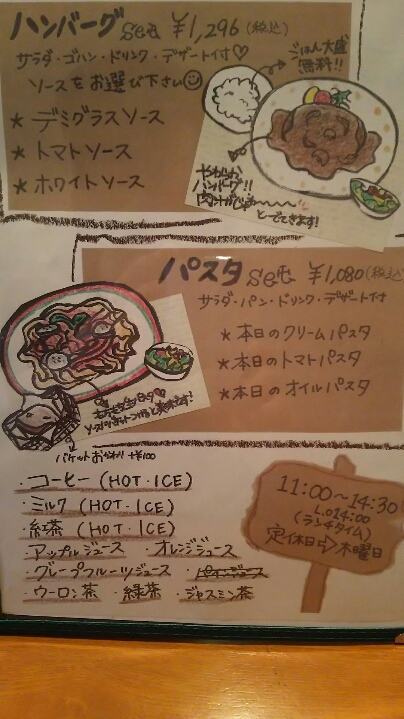 ハンバーグ set ¥1,296 (税込)
サラダ・ゴハン・ドリンク・デザート付♡
ソースをお選び下さい
ごはん大盛
無料!!
★ デミグラスソース
★ トマトソース
★ ホワイトソース
やわらか
ハンバーグ!!
肉汁がじゅわ〜〜
とでてきます!
パスタ set ¥1,080 (税込)
サラダ・パン・ドリンク・デザート付
★ 本日のクリームパスタ
★ 本日のトマトパスタ
★ 本日のオイルパスタ
バケットおかわり +¥100
・コーヒー (HOT・ICE)
・ミルク (HOT・ICE)
・紅茶 (HOT・ICE)
・アップルジュース ・オレンジジュース
・グレープフルーツジュース ・パインジュース
・ウーロン茶 ・緑茶 ・ジャスミン茶
11:00〜14:30
L.o 14:00
(ランチタイム)
定休日⇨木曜日